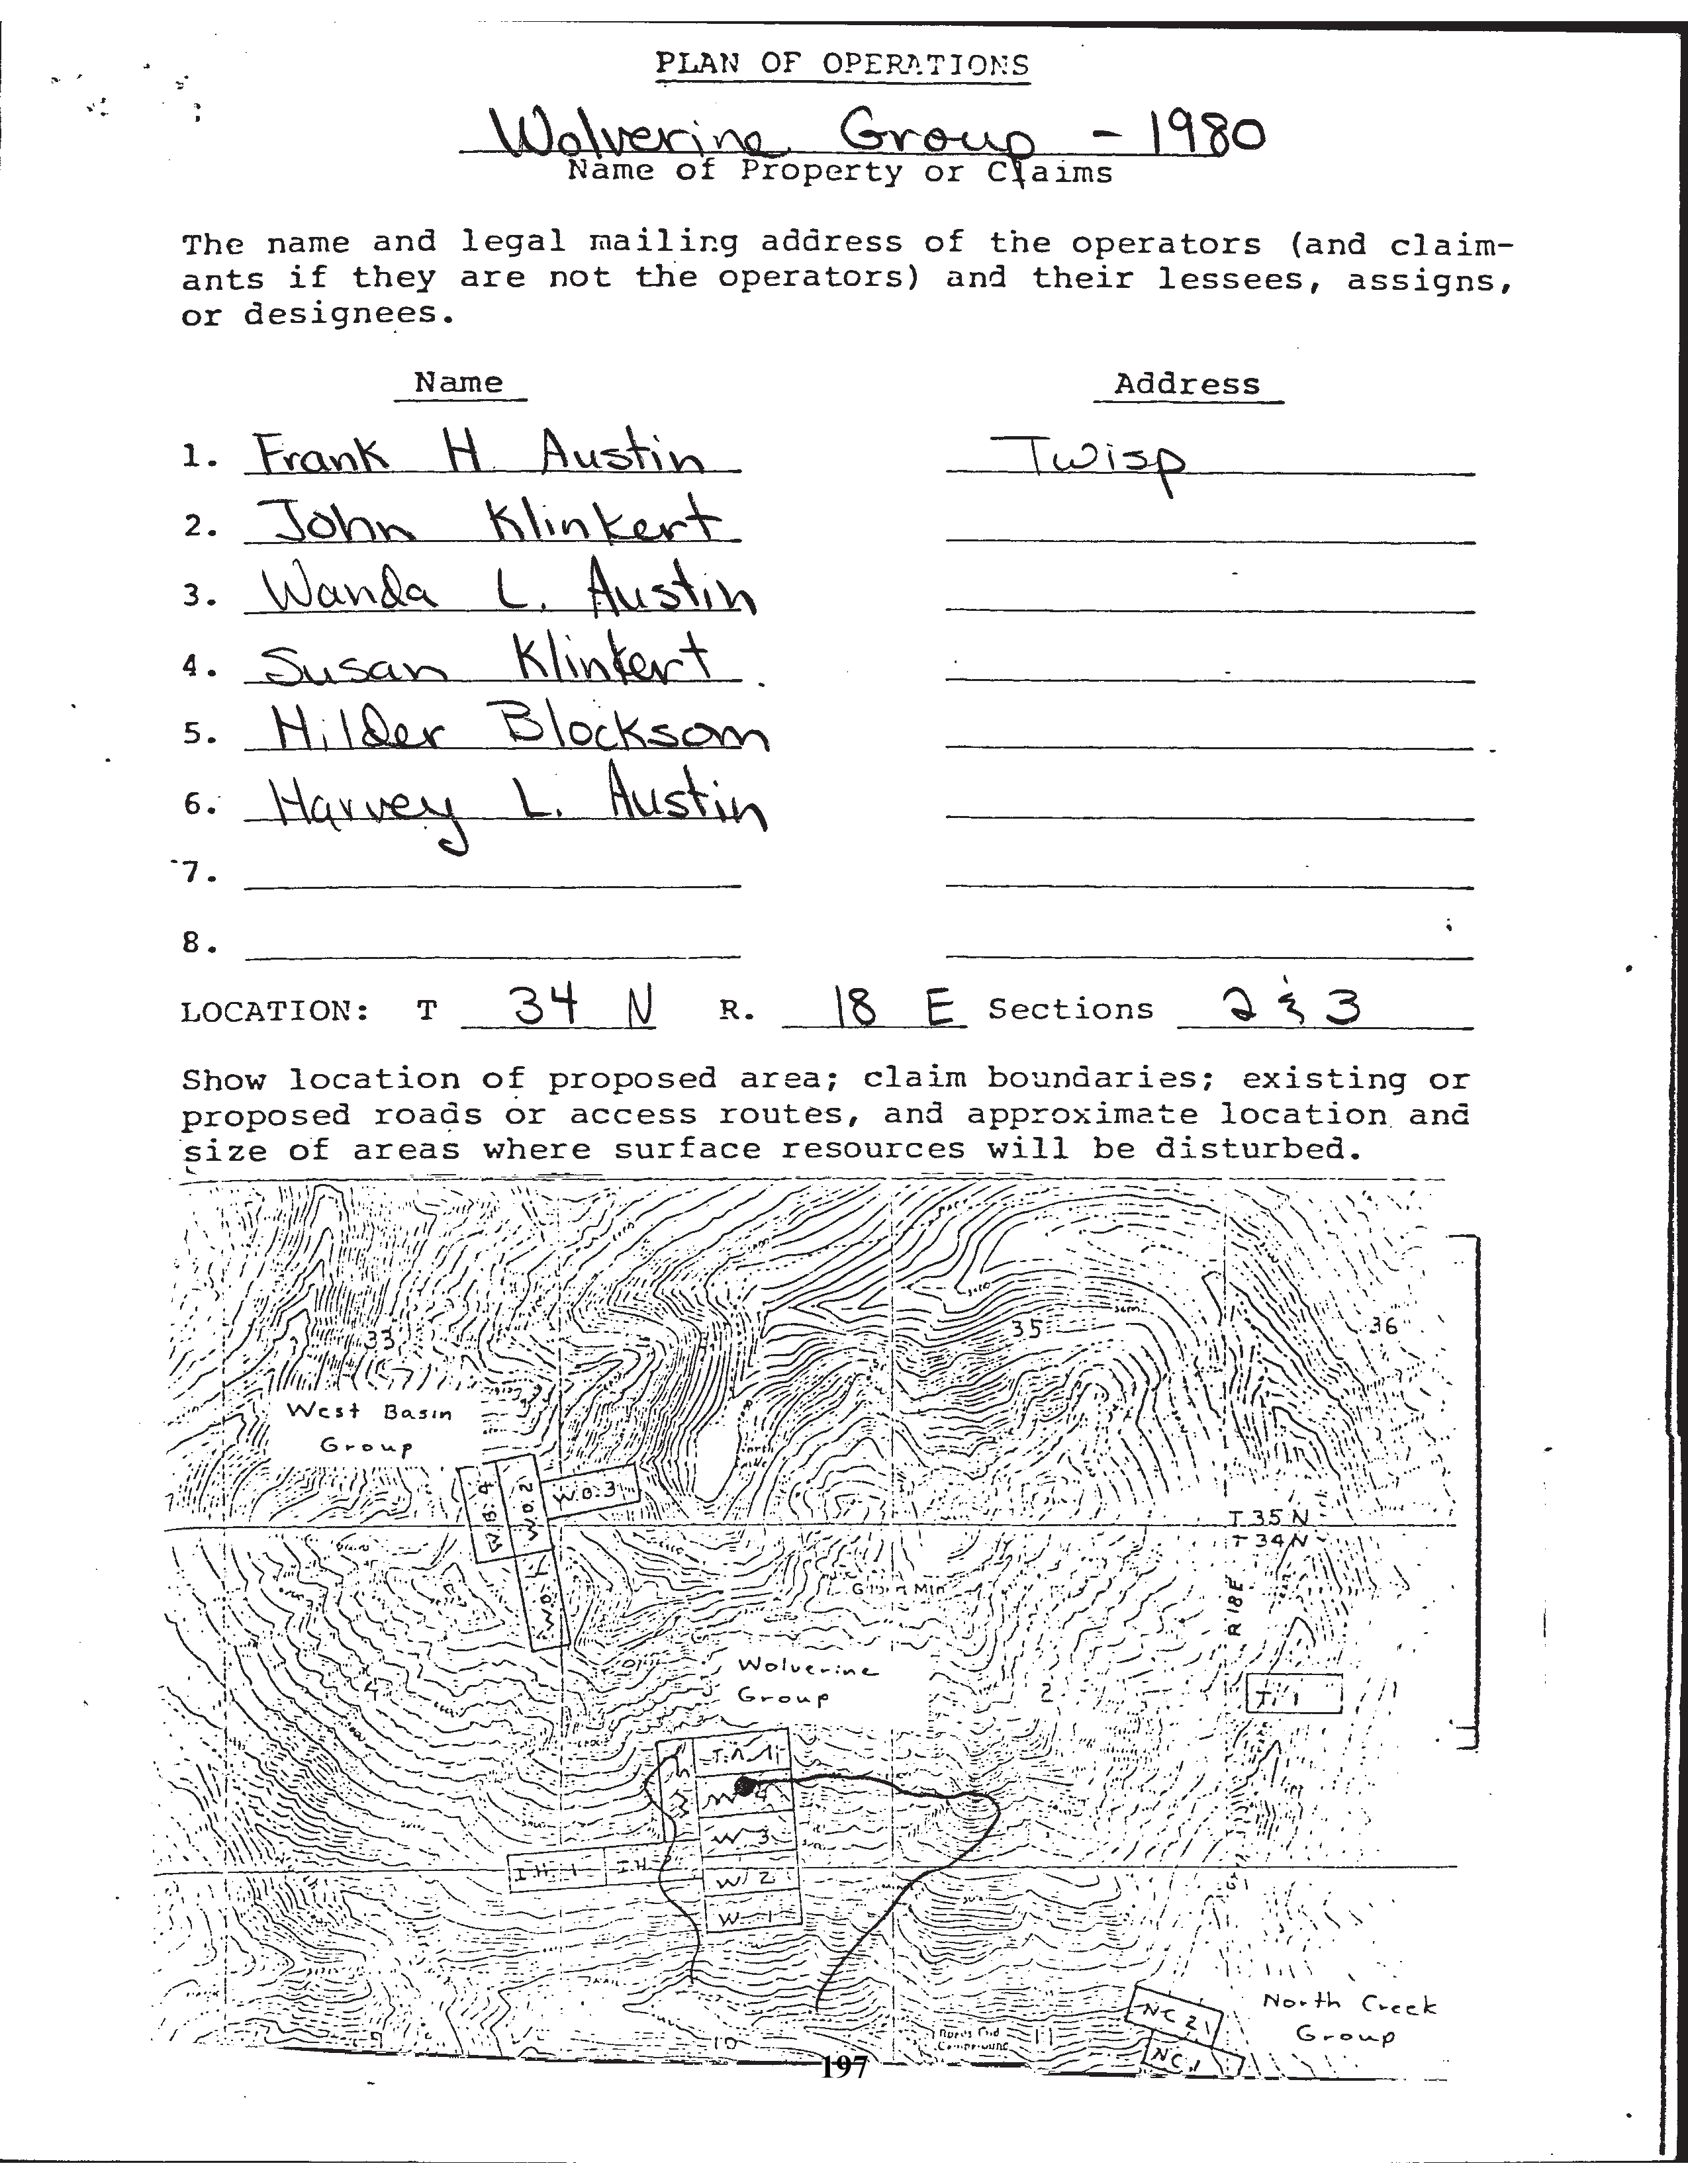 PLAN OF OPERATIONS
Wolverine Group - 1980
Name of Property or Claims
The name and legal mailing address of the operators (and claim-
ants if they are not the operators) and their lessees, assigns,
or designees.
Name Address
1. Frank H Austin Twisp
2. John Klinkert
3. Wanda L. Austin
4. Susan Klinkert
5. Hilder Blocksom
6. Harvey L. Austin
7.
8.
LOCATION: T 34 N R. 18 E Sections 2 & 3
Show location of proposed area; claim boundaries; existing or
proposed roads or access routes, and approximate location and
size of areas where surface resources will be disturbed.
33 35 36
West Basin
Group
W.B. 4
W.O. 2
W.O. 3
W.O. 1
T 35 N
T 34 N
R 18 E
Gilbert Mtn
Wolverine
Group
4
2
T. 1
W 4
W 3
I.H. 1 I.H. 2
W 2
W 1
TRAIL
NC 2
North Creek
Group
10
11
NC 1
197